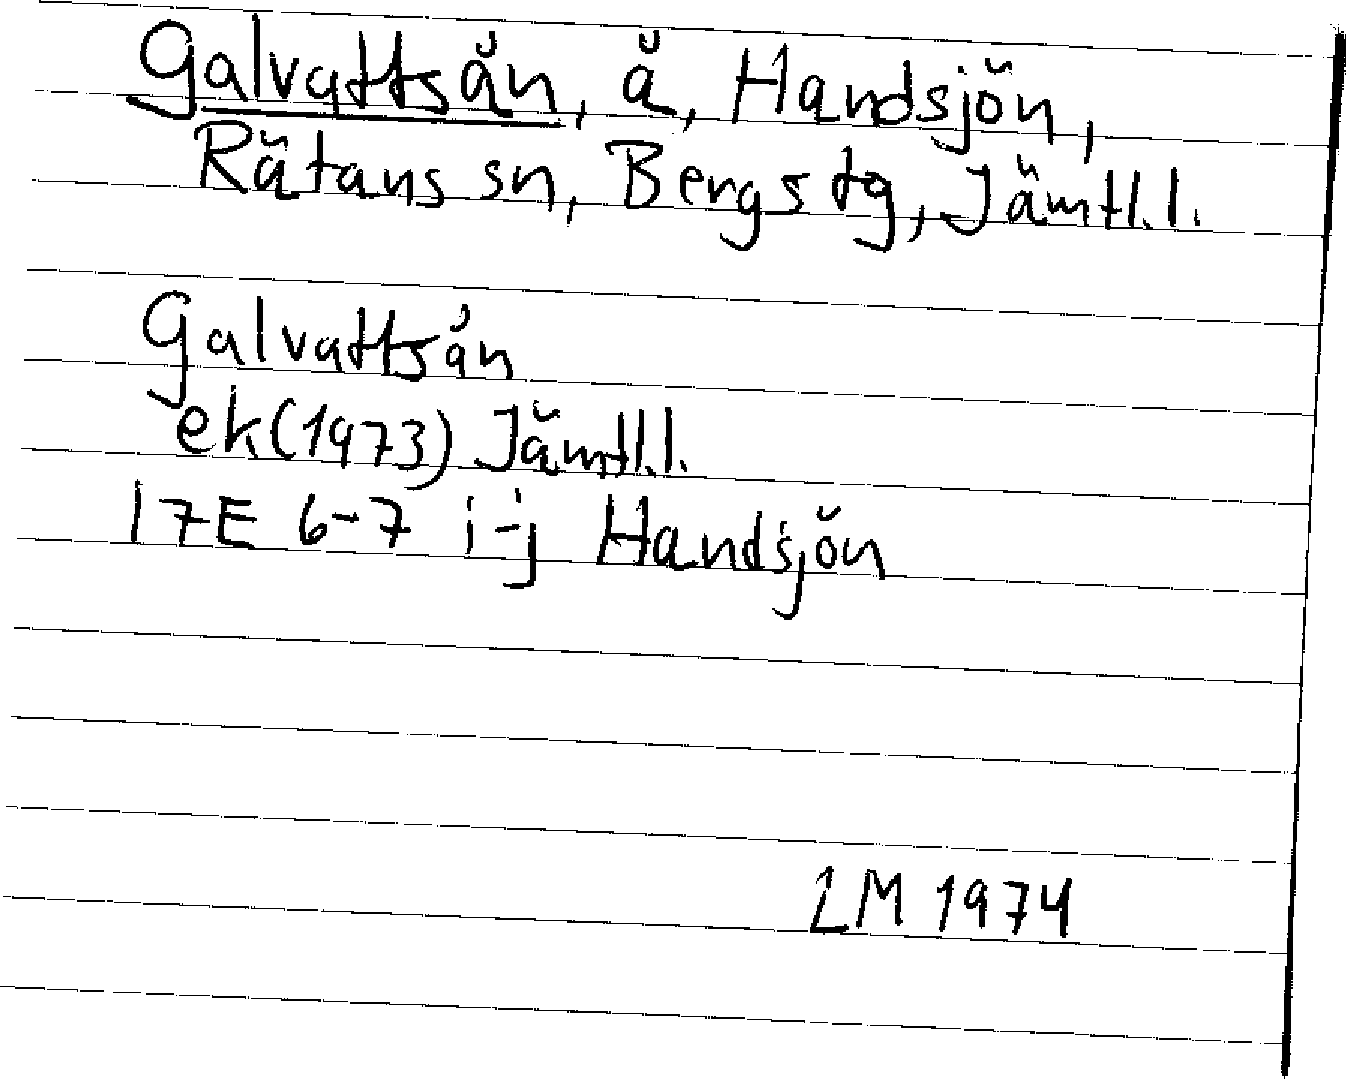 Galvattsån, å, Handsjön,
Rätans sn, Bergs tg, Jämtl.l.
Galvattsån
ek(1973) Jämtl.l.
17E 6-7 i-j Handsjön
LM 1974